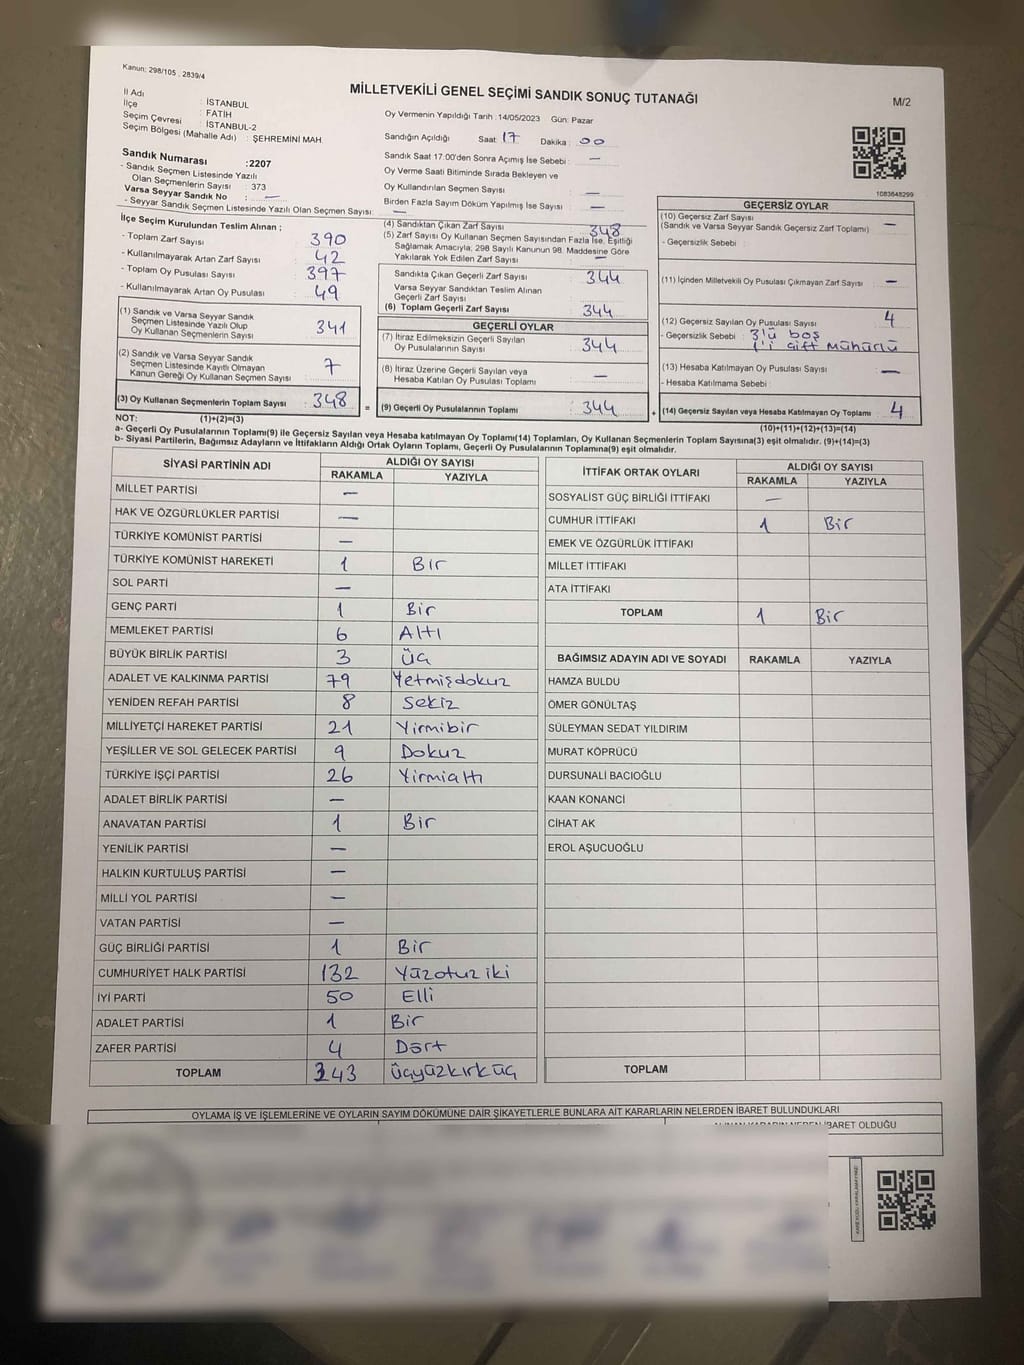 Kanun: 298/105 , 2839/4
MİLLETVEKİLİ GENEL SEÇİMİ SANDIK SONUÇ TUTANAĞI
M/2
İl Adı : İSTANBUL
İlçe : FATİH
Seçim Çevresi : İSTANBUL-2
Seçim Bölgesi (Mahalle Adı) : ŞEHREMİNİ MAH.
Oy Vermenin Yapıldığı Tarih : 14/05/2023 Gün: Pazar
Sandığın Açıldığı Saat: 17 Dakika : 00
Sandık Saat 17.00'den Sonra Açımış İse Sebebi : —
Oy Verme Saati Bitiminde Sırada Bekleyen ve
Oy Kullandırılan Seçmen Sayısı : —
Birden Fazla Sayım Döküm Yapılmış İse Sayısı : —
1083648299
Sandık Numarası : 2207
- Sandık Seçmen Listesinde Yazılı
Olan Seçmenlerin Sayısı : 373
Varsa Seyyar Sandık No : —
- Seyyar Sandık Seçmen Listesinde Yazılı Olan Seçmen Sayısı: —
İlçe Seçim Kurulundan Teslim Alınan ;
- Toplam Zarf Sayısı 390
- Kullanılmayarak Artan Zarf Sayısı 42
- Toplam Oy Pusulası Sayısı 397
- Kullanılmayarak Artan Oy Pusulası 49
(1) Sandık ve Varsa Seyyar Sandık
Seçmen Listesinde Yazılı Olup
Oy Kullanan Seçmenlerin Sayısı 341
(2) Sandık ve Varsa Seyyar Sandık
Seçmen Listesinde Kayıtlı Olmayan
Kanun Gereği Oy Kullanan Seçmen Sayısı 7
(3) Oy Kullanan Seçmenlerin Toplam Sayısı 348
(4) Sandıktan Çıkan Zarf Sayısı 348
(5) Zarf Sayısı Oy Kullanan Seçmen Sayısından Fazla İse, Eşitliği
Sağlamak Amacıyla, 298 Sayılı Kanunun 98. Maddesine Göre
Yakılarak Yok Edilen Zarf Sayısı —
Sandıkta Çıkan Geçerli Zarf Sayısı 344
Varsa Seyyar Sandıktan Teslim Alınan
Geçerli Zarf Sayısı
(6) Toplam Geçerli Zarf Sayısı 344
GEÇERLİ OYLAR
(7) İtiraz Edilmeksizin Geçerli Sayılan
Oy Pusulalarının Sayısı 344
(8) İtiraz Üzerine Geçerli Sayılan veya
Hesaba Katılan Oy Pusulası Toplamı —
= (9) Geçerli Oy Pusulalarının Toplamı 344
GEÇERSİZ OYLAR
(10) Geçersiz Zarf Sayısı
(Sandık ve Varsa Seyyar Sandık Geçersiz Zarf Toplamı) —
- Geçersizlik Sebebi :
(11) İçinden Milletvekili Oy Pusulası Çıkmayan Zarf Sayısı —
(12) Geçersiz Sayılan Oy Pusulası Sayısı 4
- Geçersizlik Sebebi : 3'ü boş
1'i çift mühürlü
(13) Hesaba Katılmayan Oy Pusulası Sayısı —
- Hesaba Katılmama Sebebi :
+ (14) Geçersiz Sayılan veya Hesaba Katılmayan Oy Toplamı 4
NOT: (1)+(2)=(3) (10)+(11)+(12)+(13)=(14)
a- Geçerli Oy Pusulalarının Toplamı(9) ile Geçersiz Sayılan veya Hesaba katılmayan Oy Toplamı(14) Toplamları, Oy Kullanan Seçmenlerin Toplam Sayısına(3) eşit olmalıdır. (9)+(14)=(3)
b- Siyasi Partilerin, Bağımsız Adayların ve İttifakların Aldığı Ortak Oyların Toplamı, Geçerli Oy Pusulalarının Toplamına(9) eşit olmalıdır.
SİYASİ PARTİNİN ADI ALDIĞI OY SAYISI
RAKAMLA YAZIYLA
MİLLET PARTİSİ —
HAK VE ÖZGÜRLÜKLER PARTİSİ —
TÜRKİYE KOMÜNİST PARTİSİ —
TÜRKİYE KOMÜNİST HAREKETİ 1 Bir
SOL PARTİ —
GENÇ PARTİ 1 Bir
MEMLEKET PARTİSİ 6 Altı
BÜYÜK BİRLİK PARTİSİ 3 Üç
ADALET VE KALKINMA PARTİSİ 79 Yetmişdokuz
YENİDEN REFAH PARTİSİ 8 Sekiz
MİLLİYETÇİ HAREKET PARTİSİ 21 Yirmibir
YEŞİLLER VE SOL GELECEK PARTİSİ 9 Dokuz
TÜRKİYE İŞÇİ PARTİSİ 26 Yirmialtı
ADALET BİRLİK PARTİSİ —
ANAVATAN PARTİSİ 1 Bir
YENİLİK PARTİSİ —
HALKIN KURTULUŞ PARTİSİ —
MİLLİ YOL PARTİSİ —
VATAN PARTİSİ —
GÜÇ BİRLİĞİ PARTİSİ 1 Bir
CUMHURİYET HALK PARTİSİ 132 Yüzotuz iki
İYİ PARTİ 50 Elli
ADALET PARTİSİ 1 Bir
ZAFER PARTİSİ 4 Dört
TOPLAM 343 Üçyüzkırküç
İTTİFAK ORTAK OYLARI ALDIĞI OY SAYISI
RAKAMLA YAZIYLA
SOSYALİST GÜÇ BİRLİĞİ İTTİFAKI —
CUMHUR İTTİFAKI 1 Bir
EMEK VE ÖZGÜRLÜK İTTİFAKI
MİLLET İTTİFAKI
ATA İTTİFAKI
TOPLAM 1 Bir
BAĞIMSIZ ADAYIN ADI VE SOYADI RAKAMLA YAZIYLA
HAMZA BULDU
ÖMER GÖNÜLTAŞ
SÜLEYMAN SEDAT YILDIRIM
MURAT KÖPRÜCÜ
DURSUNALİ BACIOĞLU
KAAN KONANCİ
CİHAT AK
EROL AŞUCUOĞLU
TOPLAM
OYLAMA İŞ VE İŞLEMLERİNE VE OYLARIN SAYIM DÖKÜMÜNE DAİR ŞİKAYETLERLE BUNLARA AİT KARARLARIN NELERDEN İBARET BULUNDUKLARI
İBARET OLDUĞU